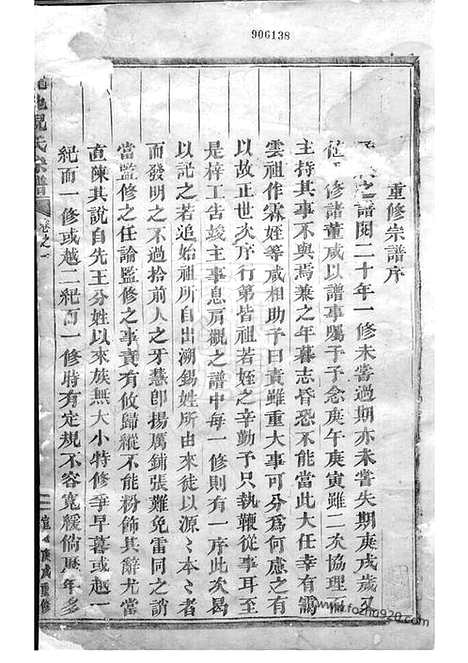 906138
重修宗譜序
之譜閱二十年一修未嘗過期亦未嘗失期庚戌歲又
修諸董咸以譜事屬于予念庚午庚寅雖二次協理而
主持其事不與焉兼之年暮志昏恐不能當此大任幸有鶚
雲祖作霖姪等咸相助予曰責雖重大事可分為何慮之有
以故正世次序行第皆祖若姪之辛勤予只執鞭從事耳至
是梓工告竣主事息肩觀之譜中每一修則有一序此曷
以記之若追始祖所自出溯錫姓所由來徒以源〻本〻者
而發明之不過拾前人之牙慧即揚厲鋪張難免雷同之誚
當監修之任論監修之事責有攸歸縱不能粉飾其辭尤當
直陳其說自先王分姓以來族無大小特修爭早暮或越一
紀而一修或越二紀而一修時有定規不容寬緩倘歷年多
氏宗譜
卷之一
一
宣
庚戌重修
www.fozhu920.com